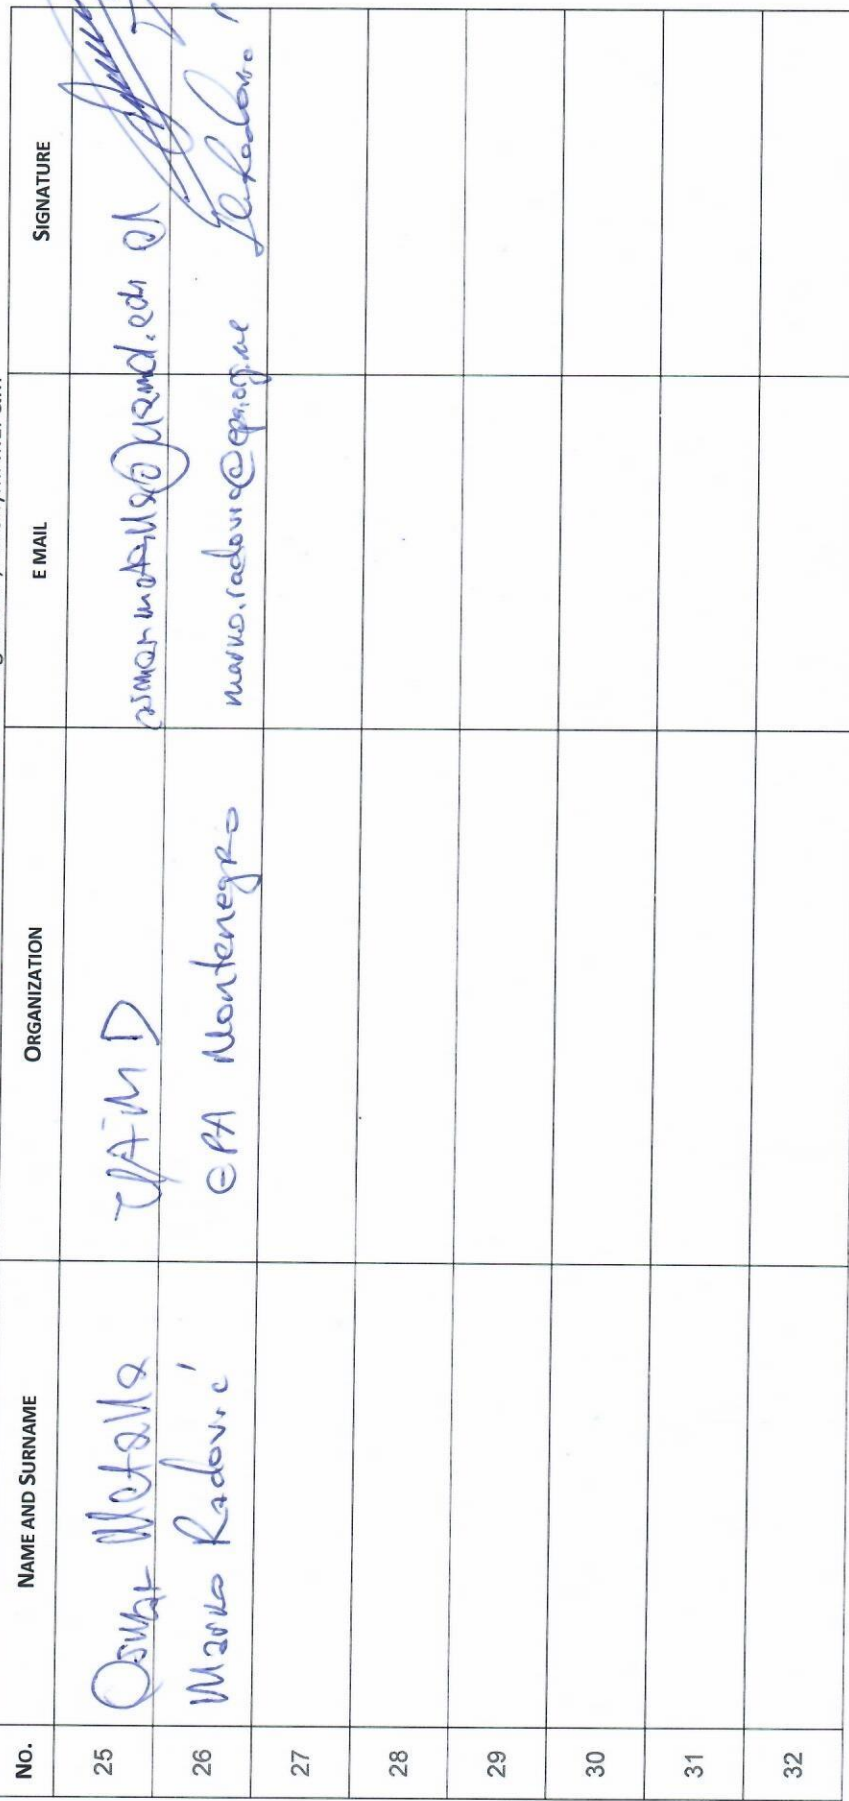 No. NAME AND SURNAME ORGANIZATION E MAIL SIGNATURE
25 Osmar Metalla UAMD
26 Marko Radović EPA Montenegro marko.radovic@epa.org.me
27
28
29
30
31
32